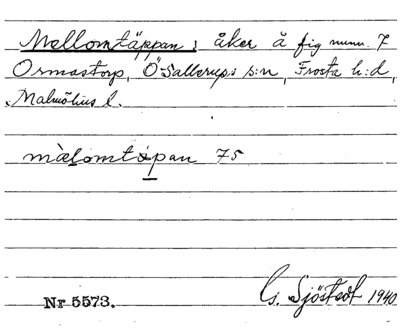 Mellomtäppan: åker å fig num. 7
Ormastorp, Ö Sallerups s:n, Frosta h:d,
Malmöhus l.
mälomtäpan 75
Nr 5573.
G. Sjöstedt 1940